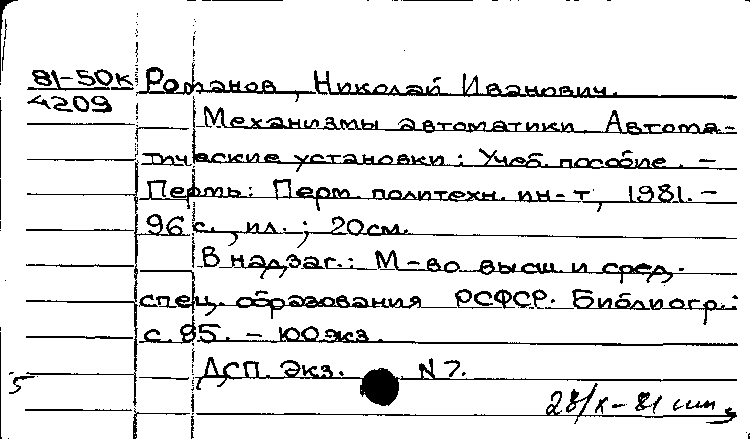 81-50к Романов, Николай Иванович.
4209
Механизмы автоматики. Автома-
тические установки: Учеб. пособие. -
Пермь: Перм. политехн. ин-т, 1981. -
96 с., ил.; 20 см.
В надзаг.: М-во высш. и сред.
спец. образования РСФСР. Библиогр.:
с. 95. - 100 экз.
ДСП. Экз. N 7.
5
28/X-81